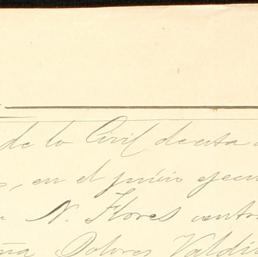 de lo Civil de esta
en el juicio ejecu
N. Flores contra
Dolores Valdi